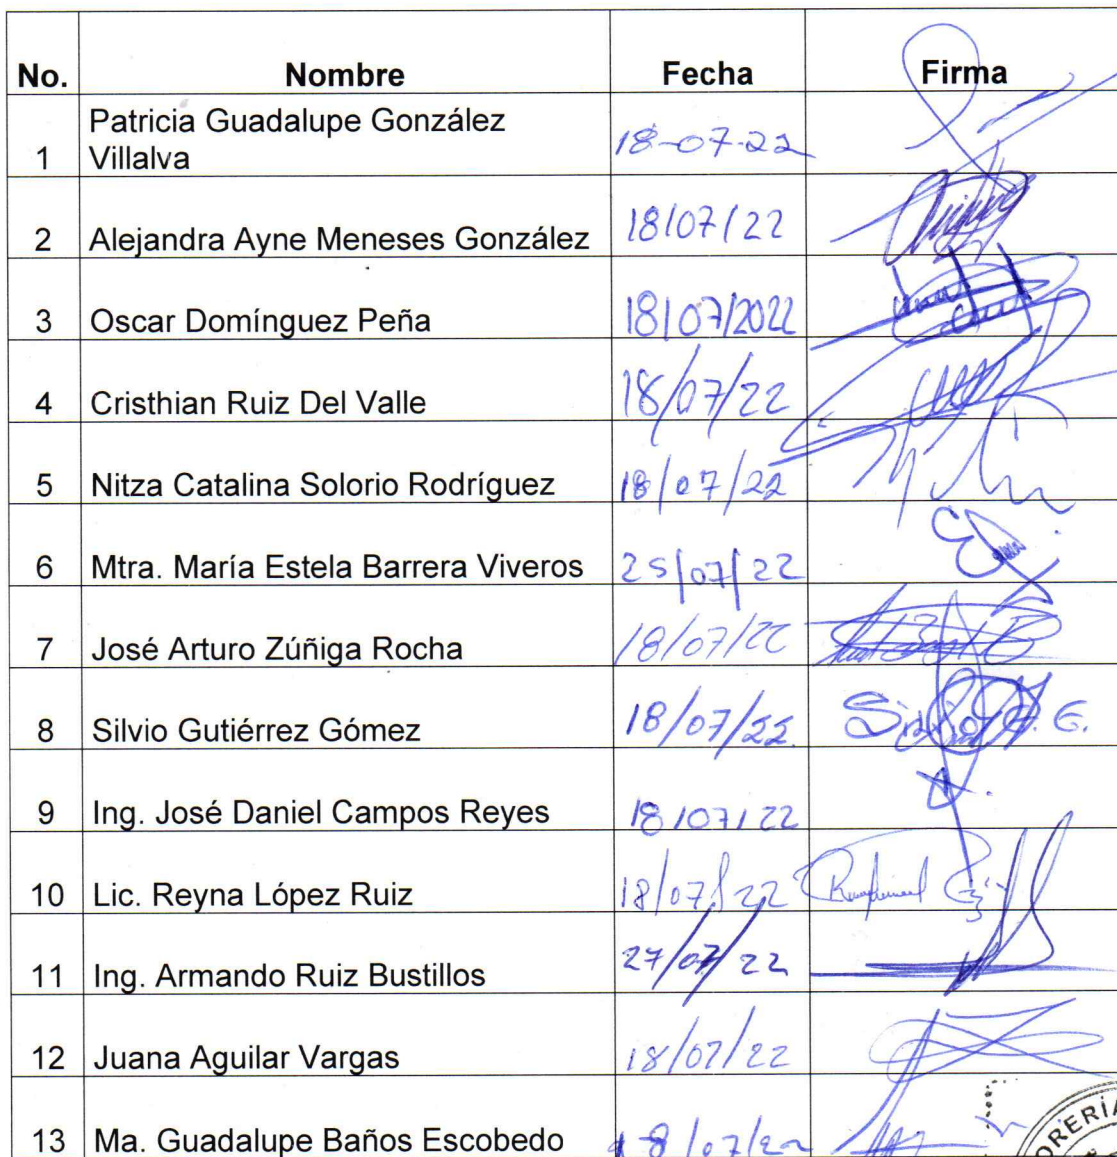 No. Nombre Fecha Firma
Patricia Guadalupe González
1 Villalva 18-07-22
2 Alejandra Ayne Meneses González 18/07/22
3 Oscar Domínguez Peña 18/07/2022
4 Cristhian Ruiz Del Valle 18/07/22
5 Nitza Catalina Solorio Rodríguez 18/07/22
6 Mtra. María Estela Barrera Viveros 25/07/22
7 José Arturo Zúñiga Rocha 18/07/22
8 Silvio Gutiérrez Gómez 18/07/22
9 Ing. José Daniel Campos Reyes 18/07/22
10 Lic. Reyna López Ruiz 18/07/22
11 Ing. Armando Ruiz Bustillos 27/07/22
12 Juana Aguilar Vargas 18/07/22
13 Ma. Guadalupe Baños Escobedo 18/07/22